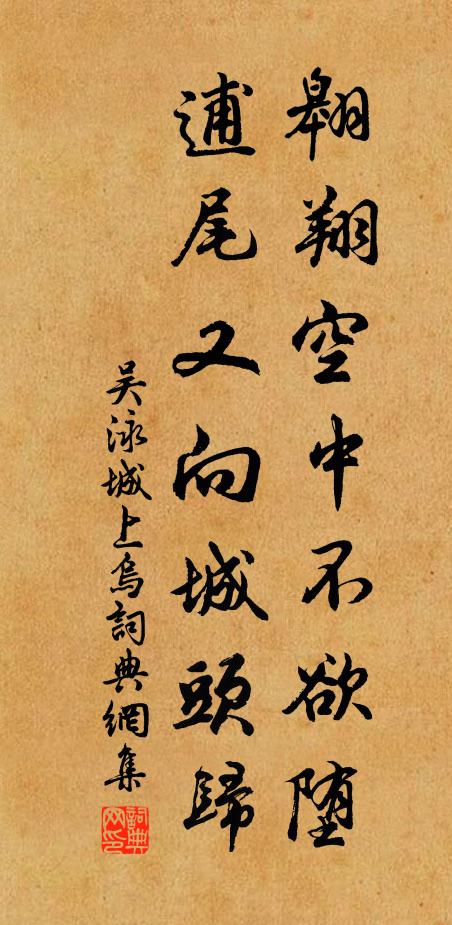 翱翔空中不欲堕
逋尾又向城頭歸
吴泳城上烏詞典網集
詞典網印